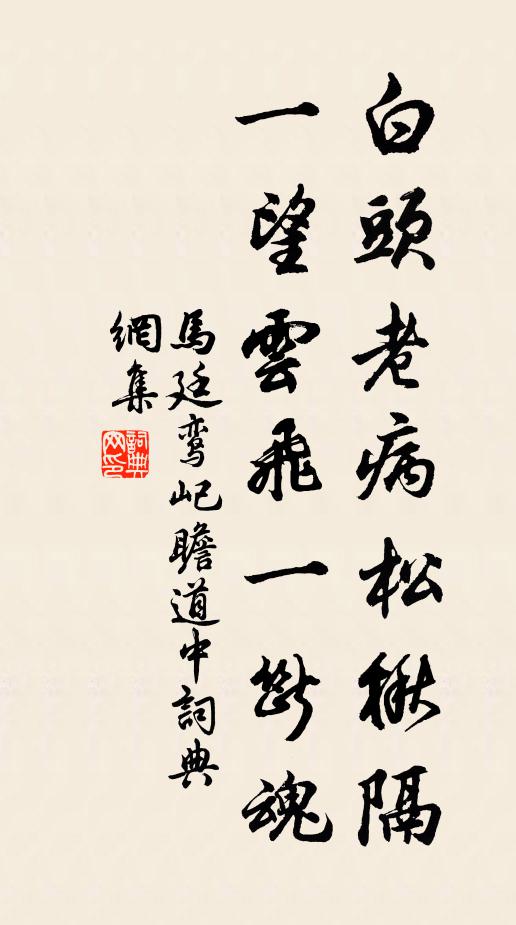 白頭老病松楸隔
一望雲飛一斷魂
馬廷鸾屺瞻道中詞典
網集
詞典
网印